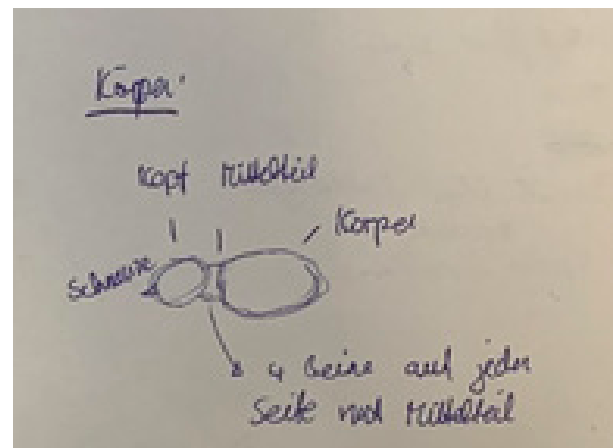 Körper
Kopf Mittelteil
Körper
Schnauze
4 Beine auf jeder
Seite mit Mittelteil